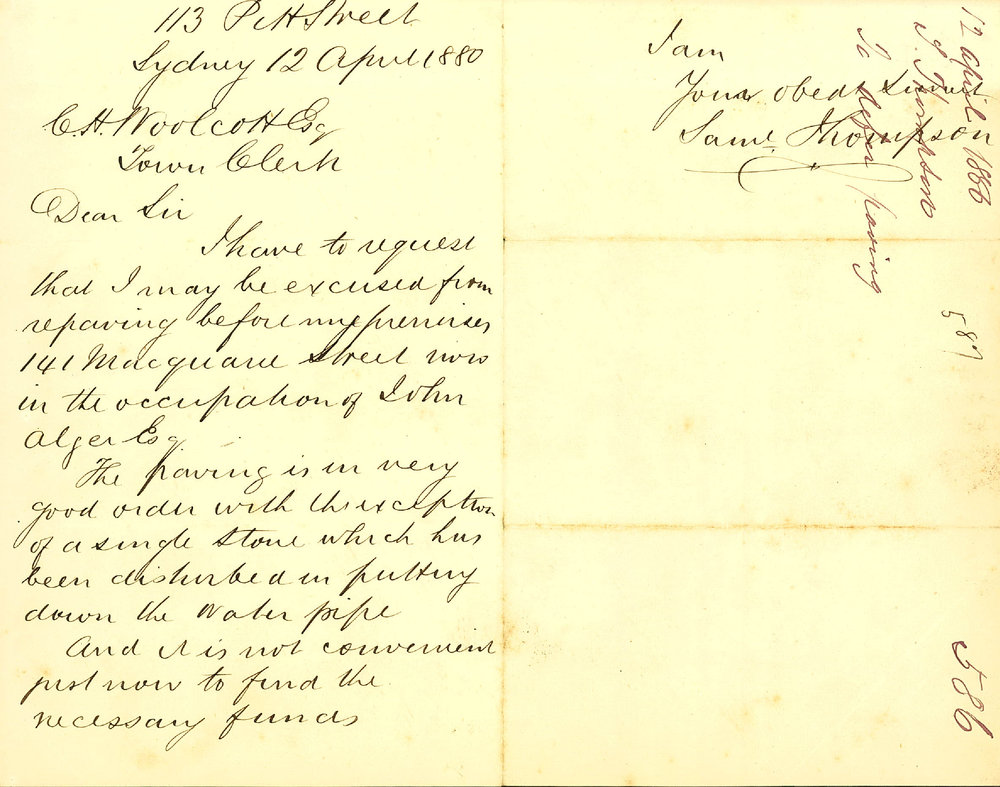 113 Pitt Street
Sydney 12 April 1880
C.H. Woolcott Esq
Town Clerk
Dear Sir
I have to request
that I may be excused from
repaving before my premises
141 Macquarie Street now
in the occupation of John
Alger Esq
The paving is in very
good order with the exception
of a single stone which has
been disturbed in putting
down the water pipe
And it is not convenient
just now to find the
necessary funds
I am
Your obedt Servant
Saml. Thompson
12 April 1880
S. Thompson
To defer paving
587
586